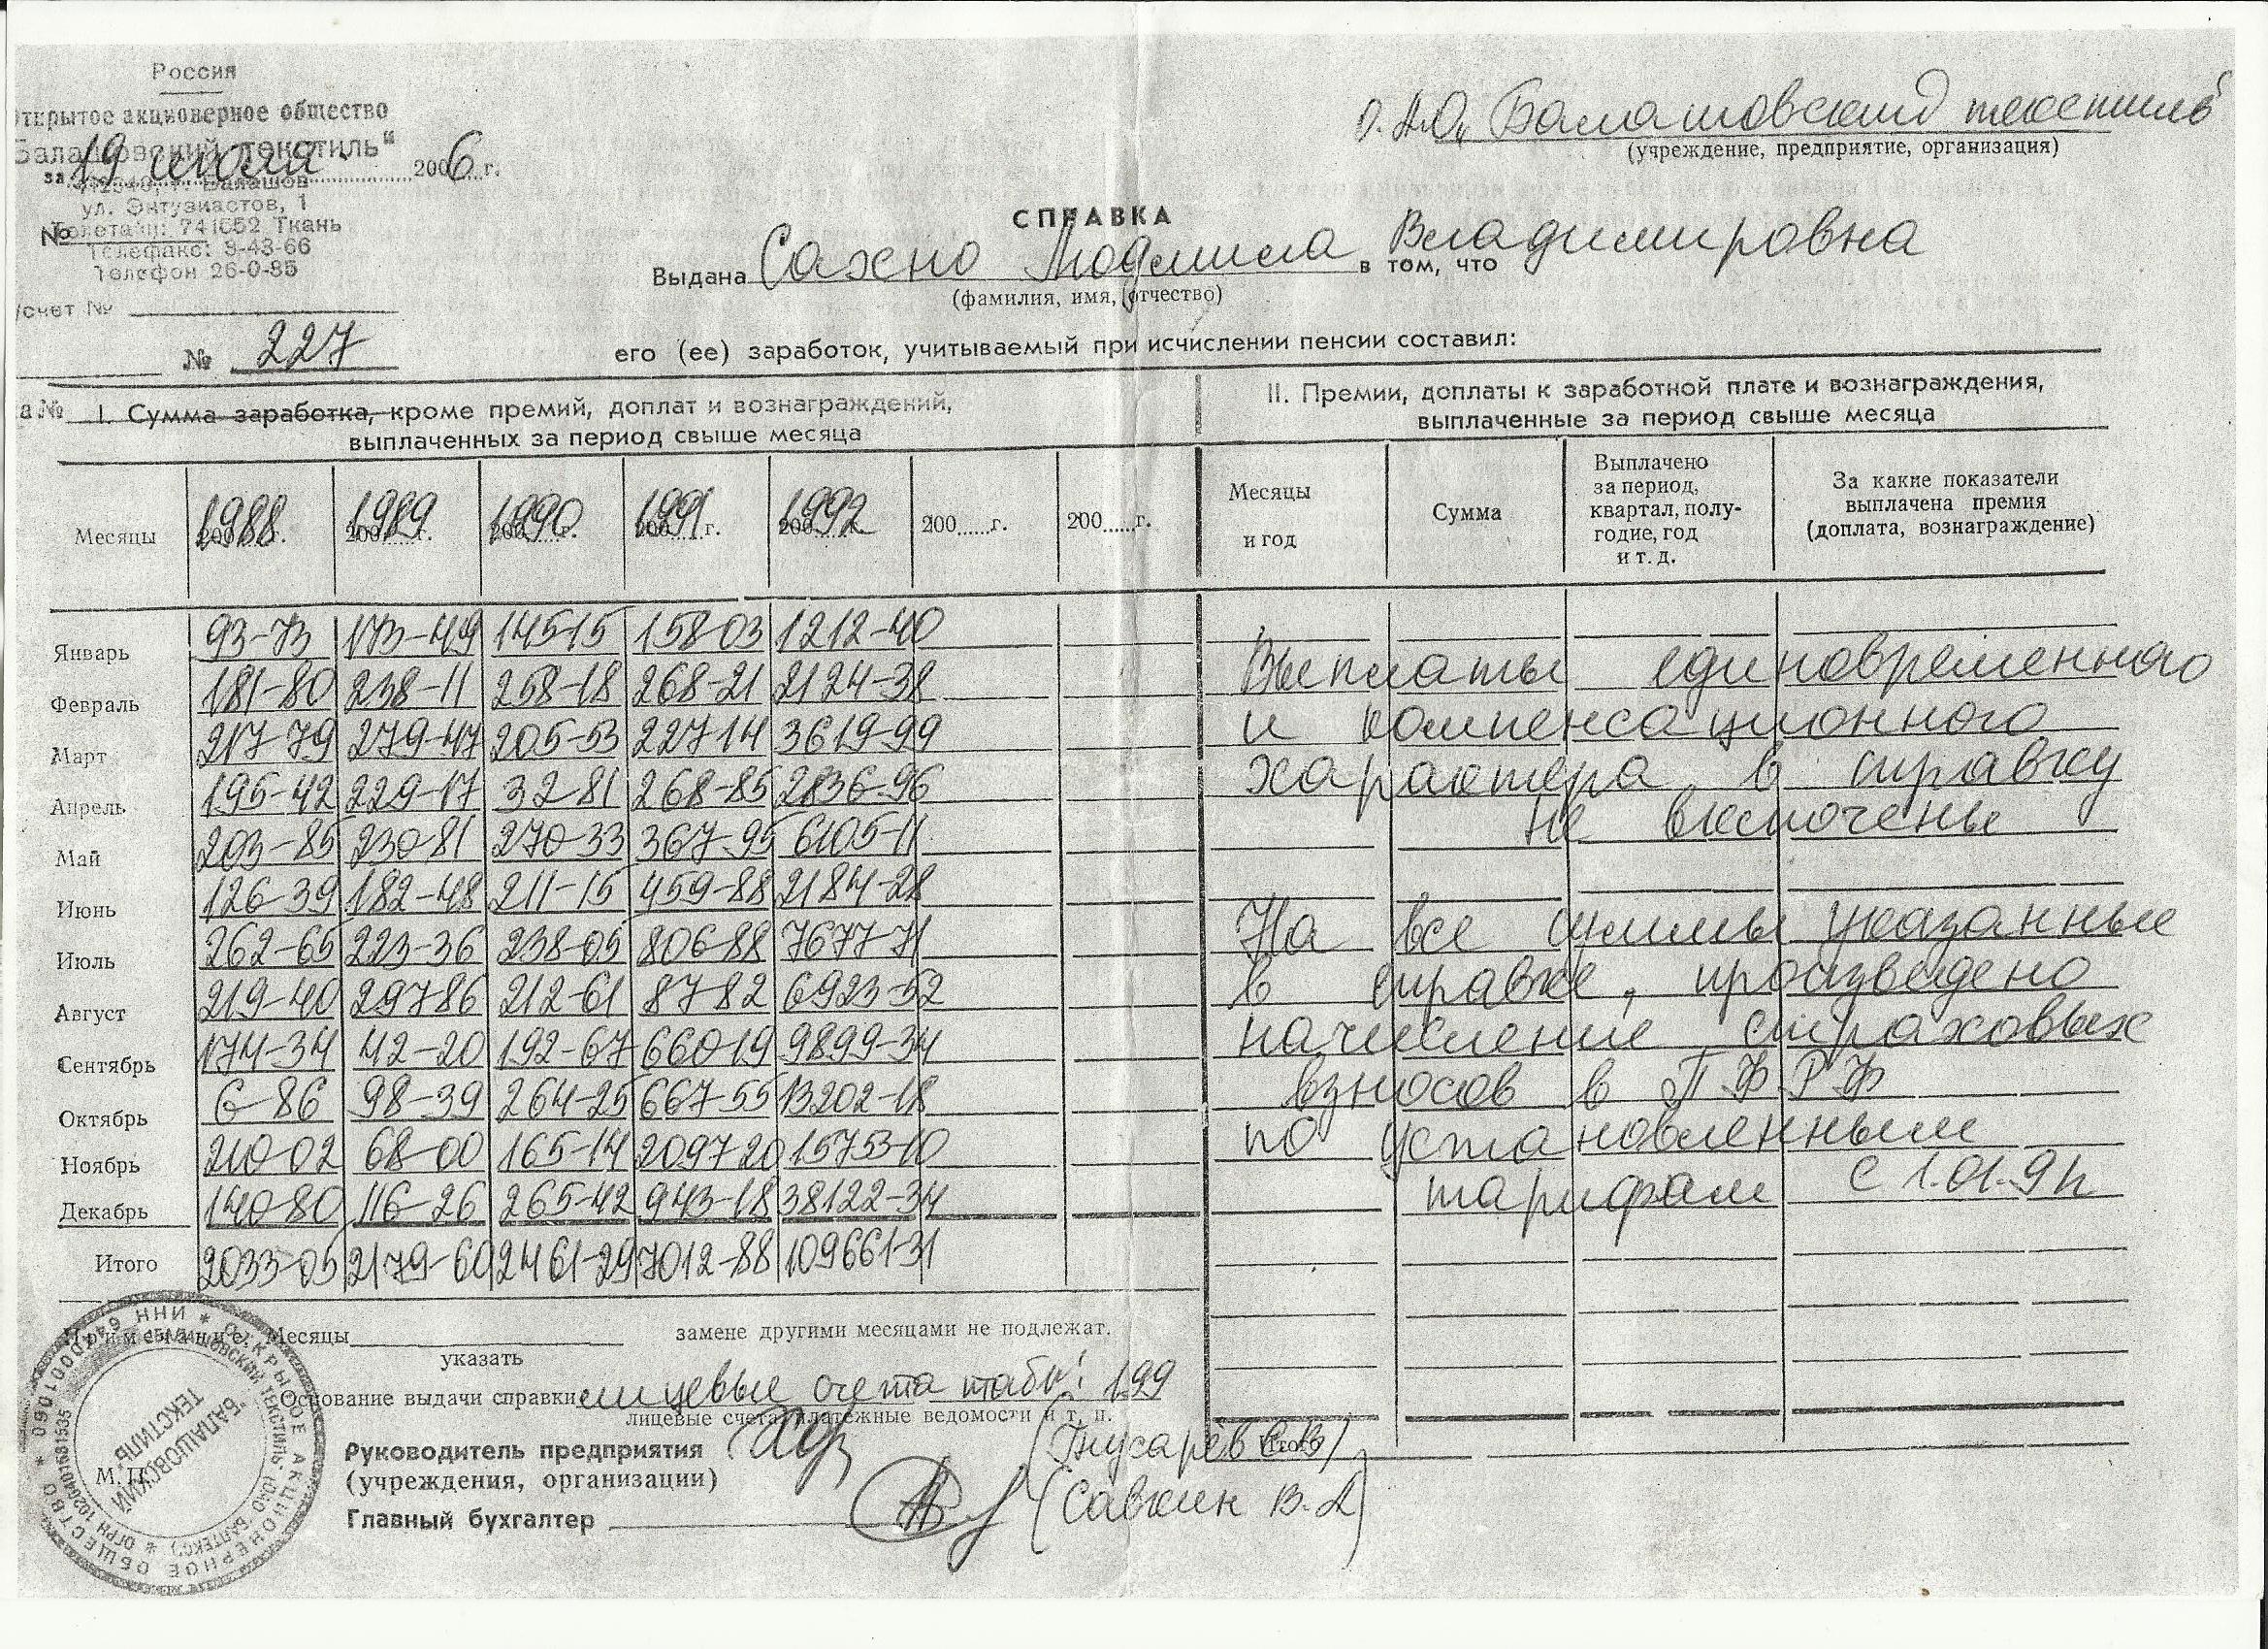 Россия
ткрытое акционерное общество
Балашовский текстиль"
за 19 июля 2006 г.
г. Балашов
ул. Энтузиастов, 1
Телетайп: 741652 Ткань
№
Телефакс: 3-43-66
Телефон 26-0-85
/счет №
№ 227
а №
О.А.О. „Балашовский текстиль"
(учреждение, предприятие, организация)
СПРАВКА
Выдана Сахно Людмила Владимировна в том, что
(фамилия, имя, отчество)
его (ее) заработок, учитываемый при исчислении пенсии составил:
I. Сумма заработка, кроме премий, доплат и вознаграждений,
выплаченных за период свыше месяца
Месяцы 1988 г. 1989 г. 1990 г. 1991 г. 1992 200.....г. 200.....г.
Январь 93-73 173-49 145-15 158-03 1212-40
Февраль 181-80 238-11 258-18 268-21 2124-38
Март 217-79 279-47 205-53 227-14 3619-99
Апрель 195-42 229-17 32-81 268-85 2836-96
Май 203-85 230-81 270-33 367-95 6105-11
Июнь 126-39 182-48 211-15 459-88 2184-28
Июль 262-65 223-36 238-05 806-88 7677-71
Август 219-40 297-86 212-61 87-82 6923-52
Сентябрь 174-34 42-20 192-67 660-19 9899-34
Октябрь 6-86 98-39 264-25 667-55 13202-18
Ноябрь 210-02 68-00 165-14 2097-20 15753-10
Декабрь 140-80 116-26 265-42 943-18 38122-34
Итого 2033-05 2179-60 2461-29 7012-88 109661-31
II. Премии, доплаты к заработной плате и вознаграждения,
выплаченные за период свыше месяца
Месяцы
и год
Сумма
Выплачено
за период,
квартал, полу-
годие, год
и т. д.
За какие показатели
выплачена премия
(доплата, вознаграждение)
Выплаты единовременного
и компенсационного
характера в справку
не включены
На все суммы указанные
в справке, произведено
начисление страховых
взносов в П.Ф.Р.Ф
по установленным
тарифам с 1.01.91г
Итого
Примечание: Месяцы замене другими месяцами не подлежат.
указать
Основание выдачи справки лицевые счета таб№: 199
лицевые счета, платежные ведомости и т. п.
Руководитель предприятия (Гнусарёв С.В)
(учреждения, организации)
М. П.
Главный бухгалтер (Савкин В.А)
ОТКРЫТОЕ АКЦИОНЕРНОЕ ОБЩЕСТВО * ИНН
"БАЛАШОВСКИЙ ТЕКСТИЛЬ" (ОАО "БАЛТЕКС") * ОГРН 1026401581535
"БАЛАШОВСКИЙ
ТЕКСТИЛЬ"